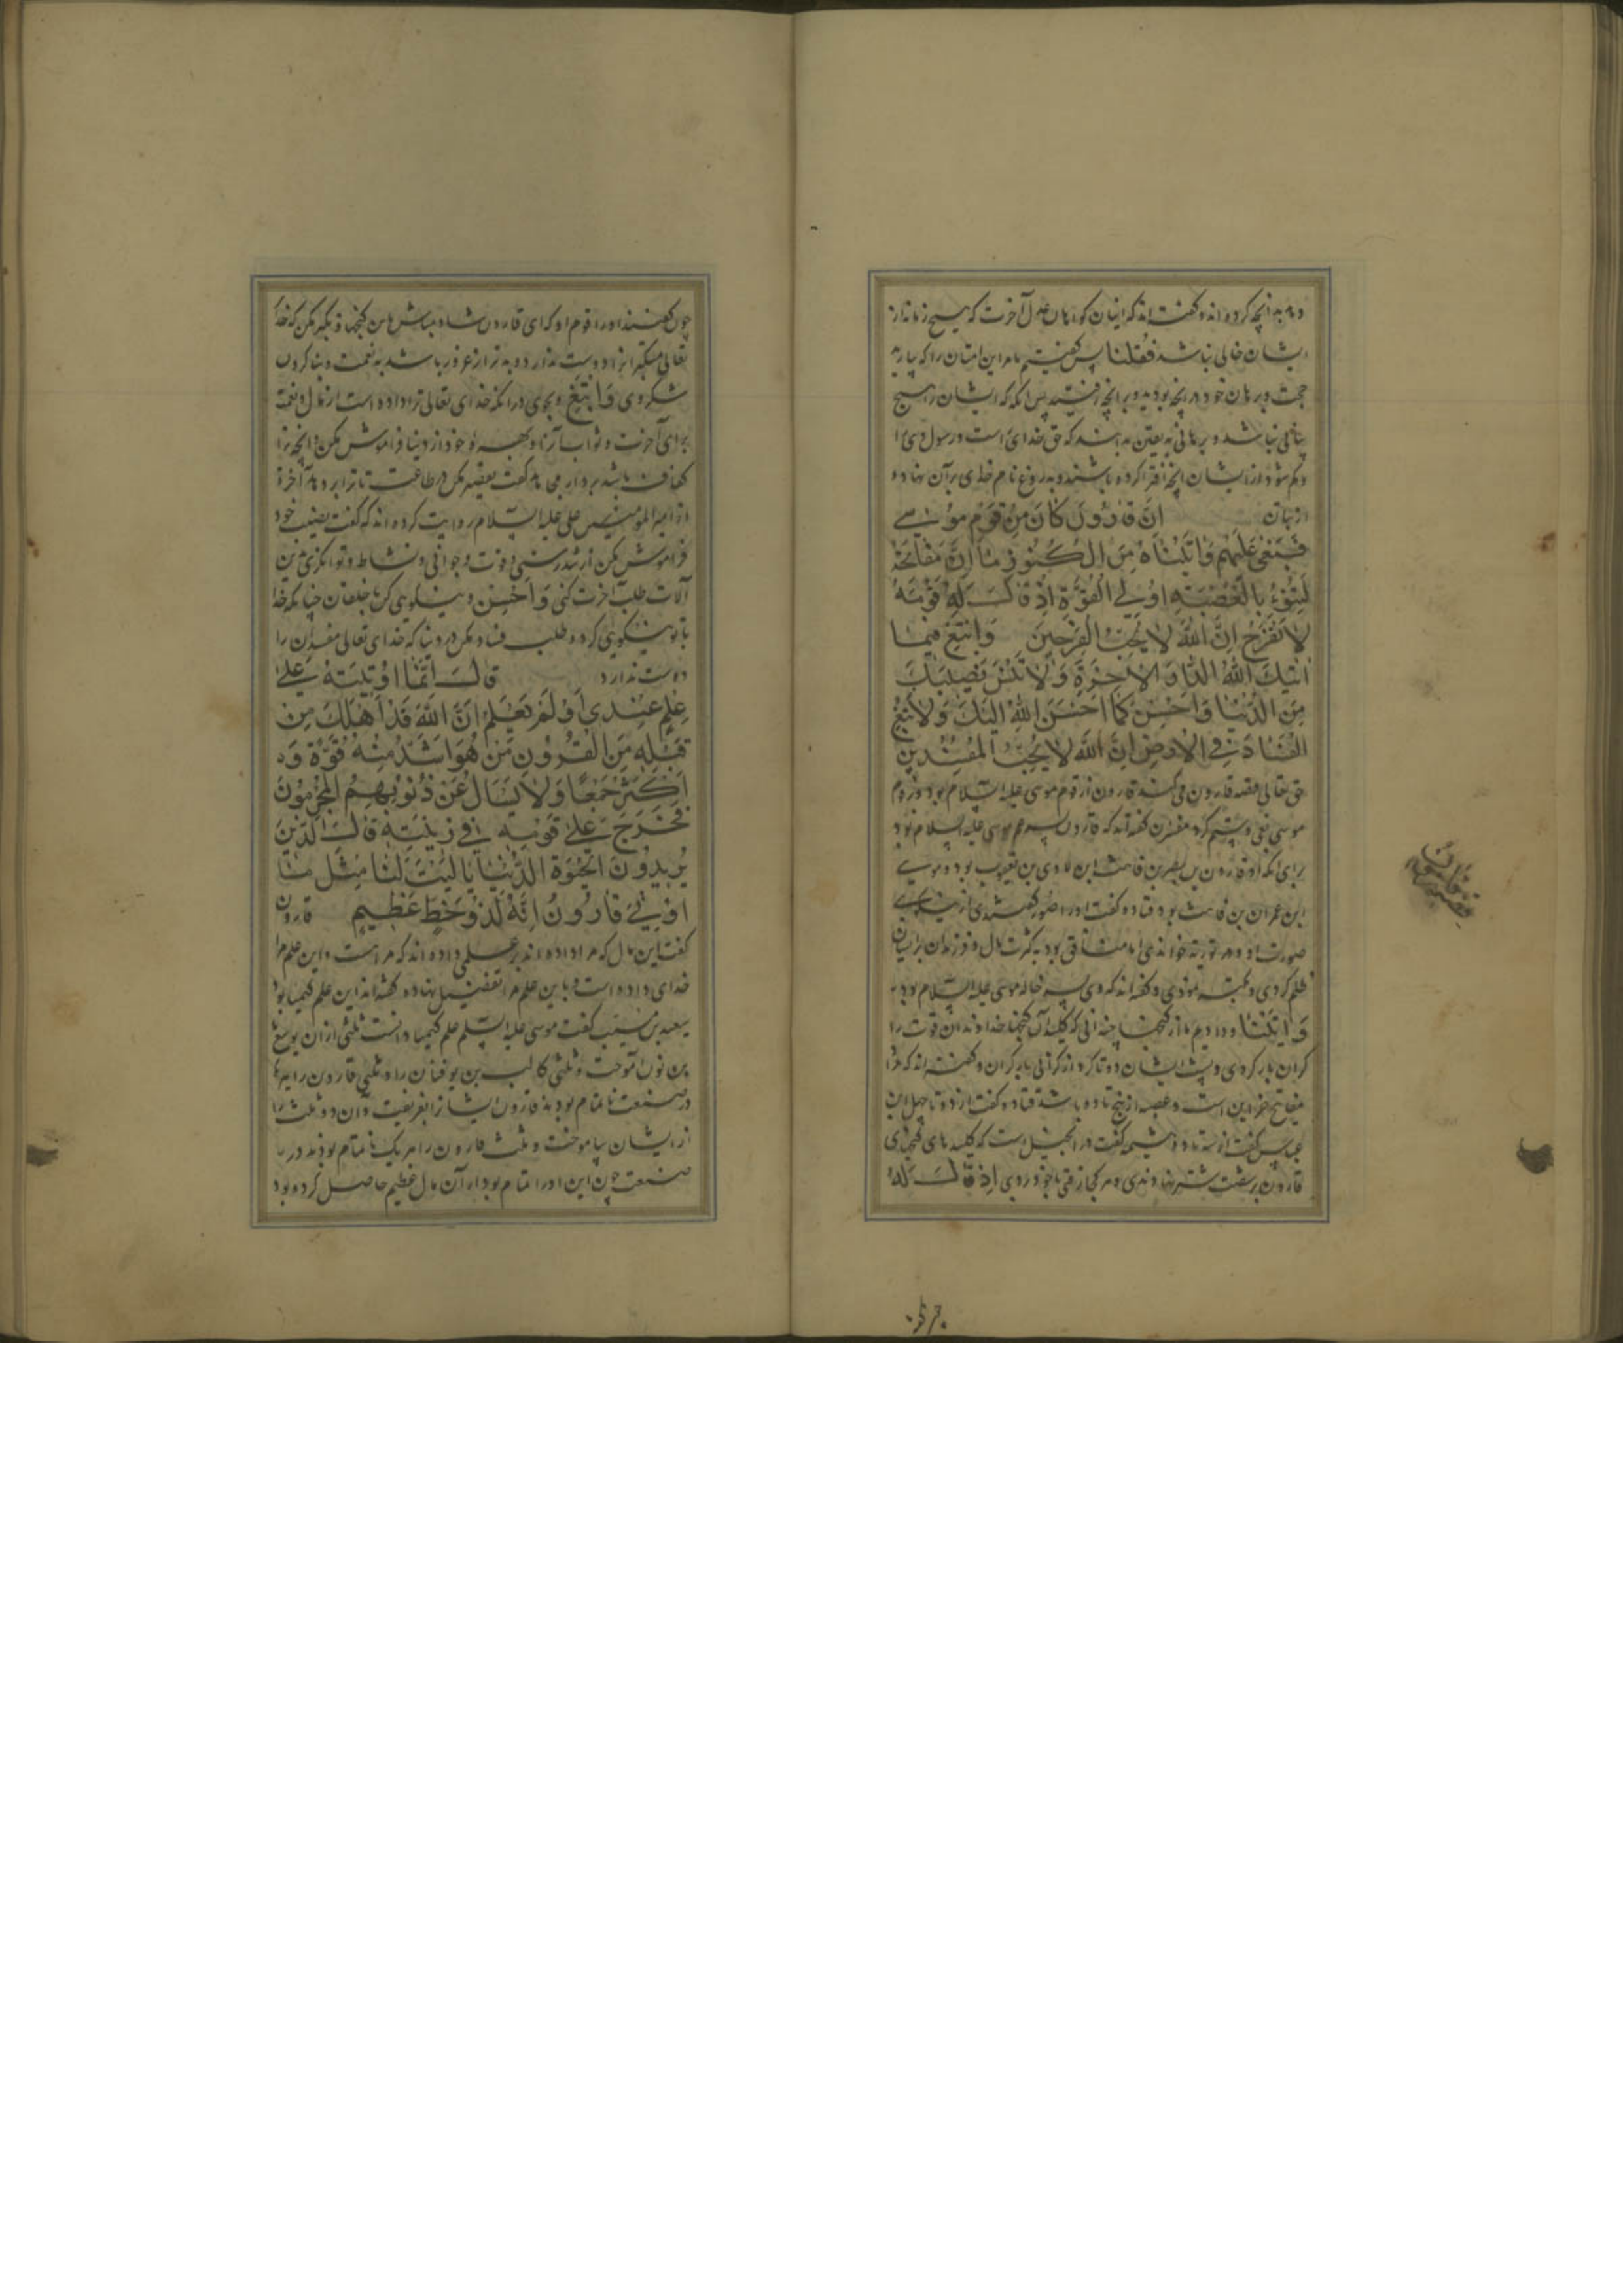 دهد بدانچه کرده اند و گفته اند که اینان گواهان عدل آخرت که هیچ زمانه از
ایشان خالی نباشد فقلنا پس گفتیم ما مر این امتان را که بیارید
حجت و برهان خود بر انچه بودید و بر انچه رفتید پس انکه که ایشان را هیچ
باشد و برهانی به یقین بدانند که حق خدای است و رسول وی را
و گم شود از ایشان انچه افترا کرده باشند و بدروغ نام خدای بر آن نهاده
از بتان ان قارون کان من قوم موسی
فبغی علیهم و اتیناه من الکنوز ما ان مفاتحه
لتنوء بالعصبة اولی القوة اذ قال له قومه
لا تفرح ان الله لا یحب الفرحین وابتغ فیما
اتیک الله الدار الاخرة ولا تنس نصیبک
من الدنیا و احسن کما احسن الله الیک ولا تبغ
الفساد فی الارض ان الله لا یحب المفسدین
حق تعالی قصه قارون می کند قارون از قوم موسی علیه السلام بود و بر قوم
موسی بغی و ستم کرد مفسران گفته اند که قارون پسر عم موسی علیه السلام بود
برای انکه او قارون بن یصهر بن قاهث ابن لاوی بن یعقوب بود و موسی
ابن عمران بن قاهث بود قتاده گفت او را منور گفتندی از نیکویی
صورت او و هم توریة خواندی اما منافق بود به کثرت مال و فرزندان بر ایشان
ظلم کردی و گفته اند که وی پسر خاله موسی علیه السلام بود
و اتیناه و دادیم ما از گنجها چندانی که کلید آن گنجها خداوندان قوت را
گران بار کردی و پشت ایشان دوتا کردی از گرانی بار گران و گفته اند که مراد
مفاتح خزاین است و عصبه از پنج تا ده باشد قتاده گفت از ده تا چهل ابن
عباس گفت از سه تا ده و خثیمه گفت در انجیل است که کلیدهای گنجهای
قارون بر شصت شتر نهادندی و هر کجا رفتی با خود بردی اذ قال له
قصه قارون
چون گفتند او را قوم او که ای قارون شاد مباش باین گنجها و تکبر مکن که خدای
تعالی متکبران را دوست ندارد
شکر وی وابتغ و بجوی در انکه خدای تعالی ترا داده است از مال و نعمت
برای آخرت و ثواب آن را و بهره خود از دنیا فراموش مکن و انچه ترا
کفاف باشد بردار مجاهد گفت تقصیر مکن در طاعت تا ترا بر دهد آخرة
از امیر المومنین علی علیه السلام روایت کرده اند که گفت نصیب خود
فراموش مکن از تندرستی و قوت و جوانی و نشاط و توانگری باین
آلات طلب آخرت کنی و احسن و نیکویی کن با خلقان چنانکه خدا
با تو نیکویی کرد و طلب فساد مکن در دنیا که خدای تعالی مفسدان را
دوست ندارد قال انما اوتیته علی
علم عندی اولم یعلم ان الله قد اهلک من
قبله من القرون من هو اشد منه قوة و
اکثر جمعا ولا یسال عن ذنوبهم المجرمون
فخرج علی قومه فی زینته قال الذین
یریدون الحیوة الدنیا یا لیت لنا مثل ما
اوتی قارون انه لذو حظ عظیم قارون
گفت این مال که مرا داده اند بر علمی داده اند که مراست و این علم مرا
خدای داده است و باین علم مرا تفضیل نهاده گفته اند این علم کیمیا بود
سعید بن مسیب گفت موسی علیه السلم علم کیمیا دانست ثلثی از ان یوشع
بن نون آموخت و ثلثی کالب بن یوفنا را و ثلثی قارون را
در صنعت ناتمام بودند قارون ایشان را بفریفت و آن دو ثلث را
از ایشان بیاموخت و ثلث قارون را هر یک ناتمام بودند در
صنعت چون این او را تمام بود از آن مال عظیم حاصل کرده بود